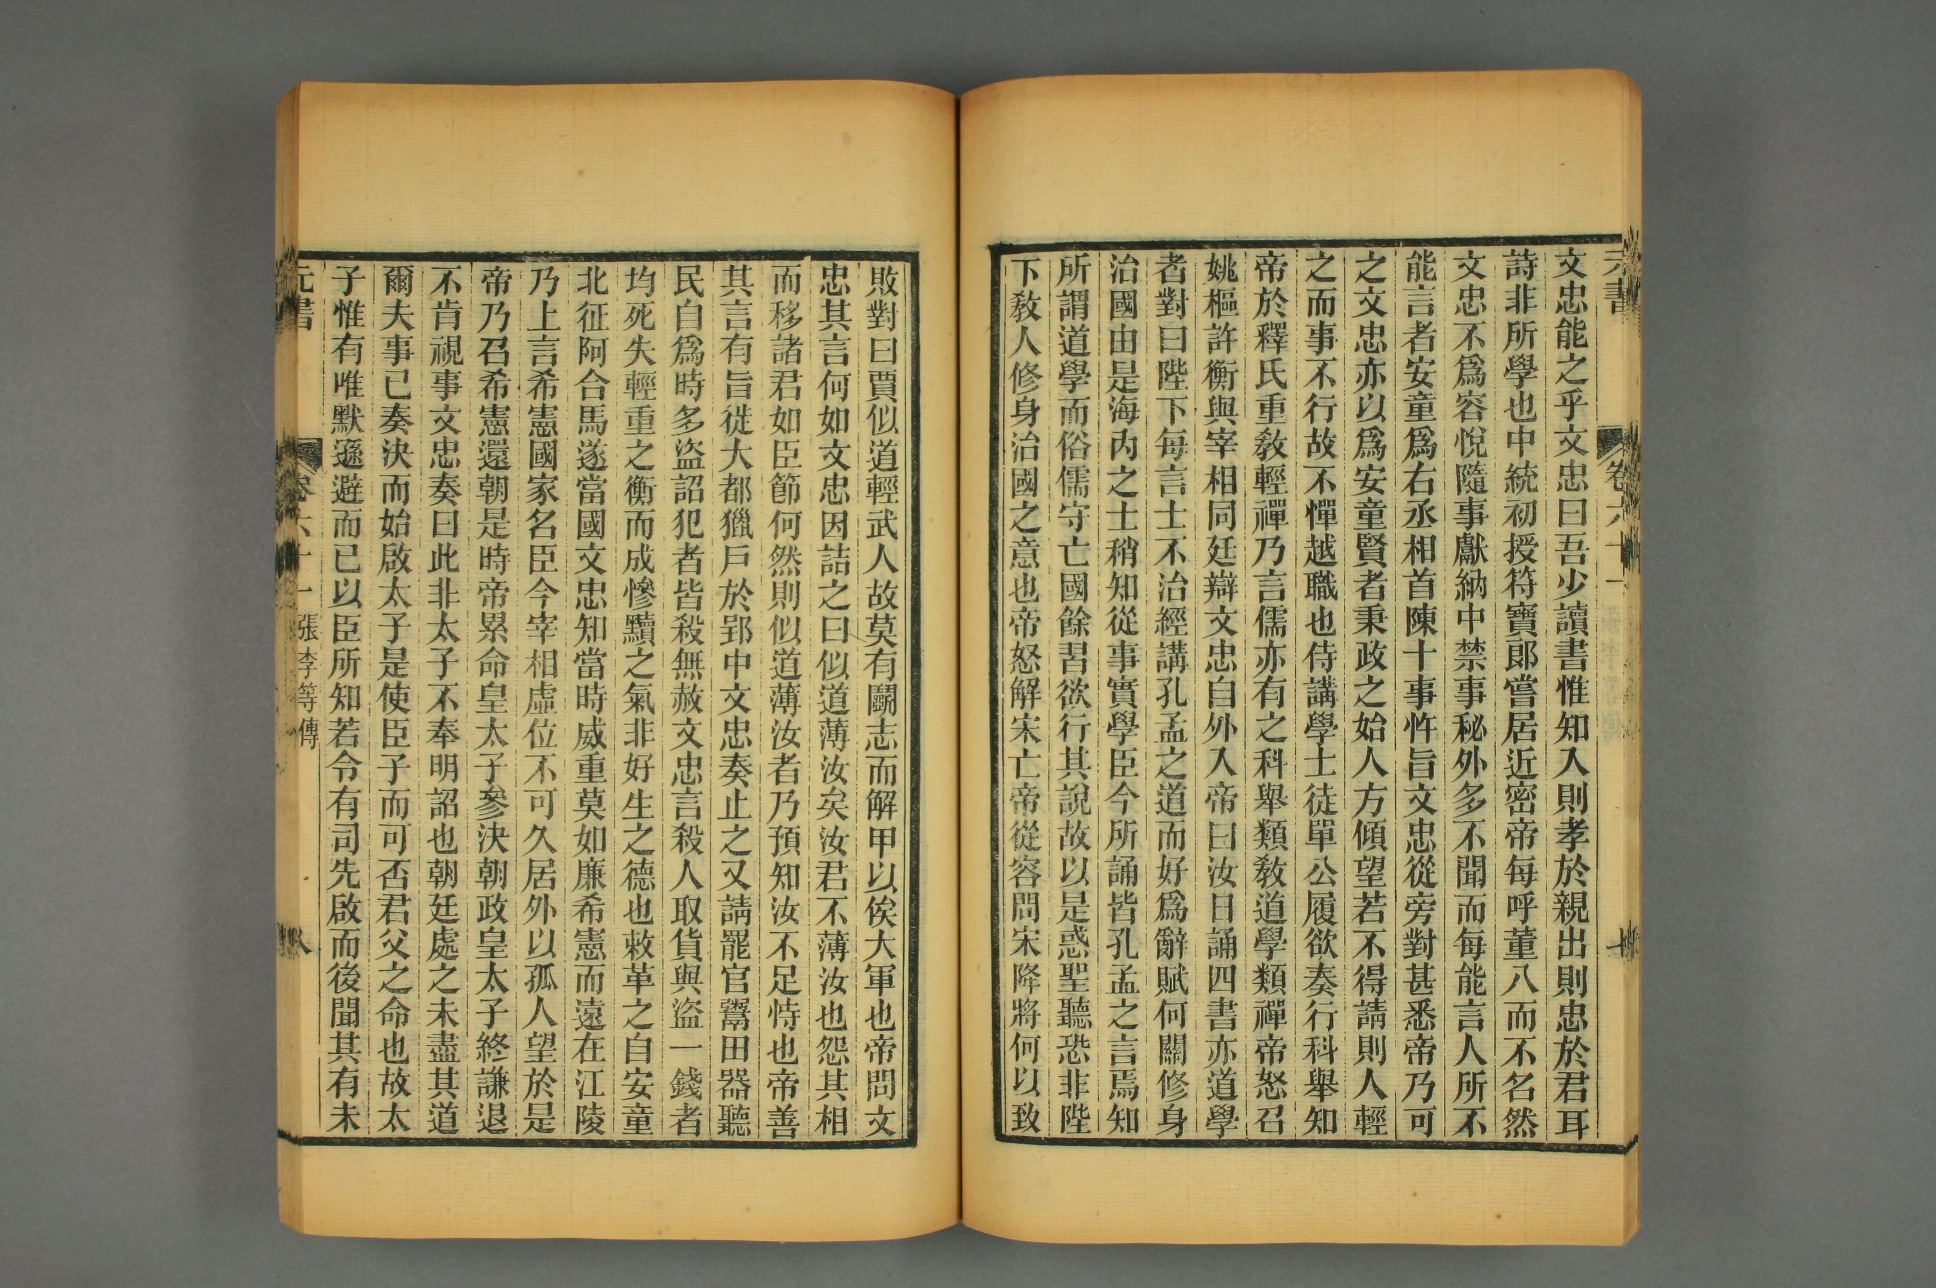 元書
卷六十一
文忠能之乎文忠曰吾少讀書惟知入則孝於親出則忠於君耳
詩非所學也中統初授符寶郎嘗居近密帝每呼董八而不名然
文忠不爲容悅隨事獻納中禁事秘外多不聞而每能言人所不
能言者安童爲右丞相首陳十事忤旨文忠從旁對甚悉帝乃可
之文忠亦以爲安童賢者秉政之始人方傾望若不得請則人輕
之而事不行故不憚越職也侍講學士徒單公履欲奏行科舉知
帝於釋氏重敎輕禪乃言儒亦有之科舉類敎道學類禪帝怒召
姚樞許衡與宰相同廷辯文忠自外入帝曰汝日誦四書亦道學
者對曰陛下每言士不治經講孔孟之道而好爲辭賦何關修身
治國由是海內之士稍知從事實學臣今所誦皆孔孟之言焉知
所謂道學而俗儒守亡國餘習欲行其說故以是惑聖聽恐非陛
下敎人修身治國之意也帝怒解宋亡帝從容問宋降將何以致
敗對曰賈似道輕武人故莫有鬭志而解甲以俟大軍也帝問文
忠其言何如文忠因詰之曰似道薄汝矣汝君不薄汝也怨其相
而移諸君如臣節何然則似道薄汝者乃預知汝不足恃也帝善
其言有旨徙大都獵戶於郢中文忠奏止之又請罷官鬻田器聽
民自爲時多盜詔犯者皆殺無赦文忠言殺人取貨與盜一錢者
均死失輕重之衡而成慘黷之氣非好生之德也敕革之自安童
北征阿合馬遂當國文忠知當時威重莫如廉希憲而遠在江陵
乃上言希憲國家名臣今宰相虛位不可久居外以孤人望於是
帝乃召希憲還朝是時帝累命皇太子參決朝政皇太子終謙退
不肯視事文忠奏曰此非太子不奉明詔也朝廷處之未盡其道
爾夫事已奏決而始啟太子是使臣子而可否君父之命也故太
子惟有唯默遜避而已以臣所知若令有司先啟而後聞其有未
元書
卷六十一
張李等傳
八